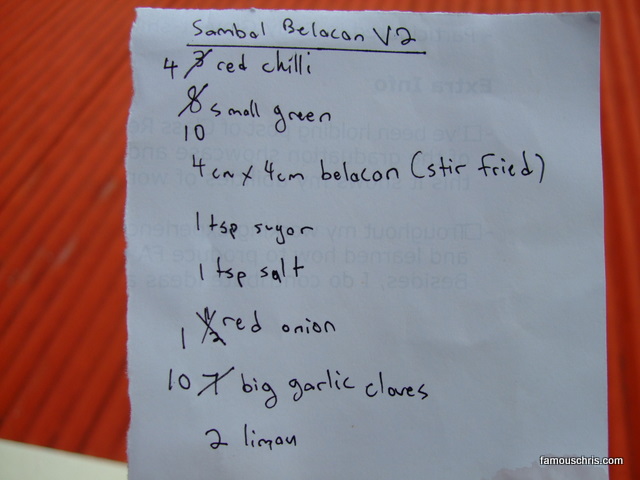 Sambal Belacan V2
4 3 red chilli
8 small green
10
4cm x 4cm belacan (stir fried)
1 tsp sugar
1 tsp salt
1 1/2 red onion
10 7 big garlic cloves
2 limau
famouschris.com